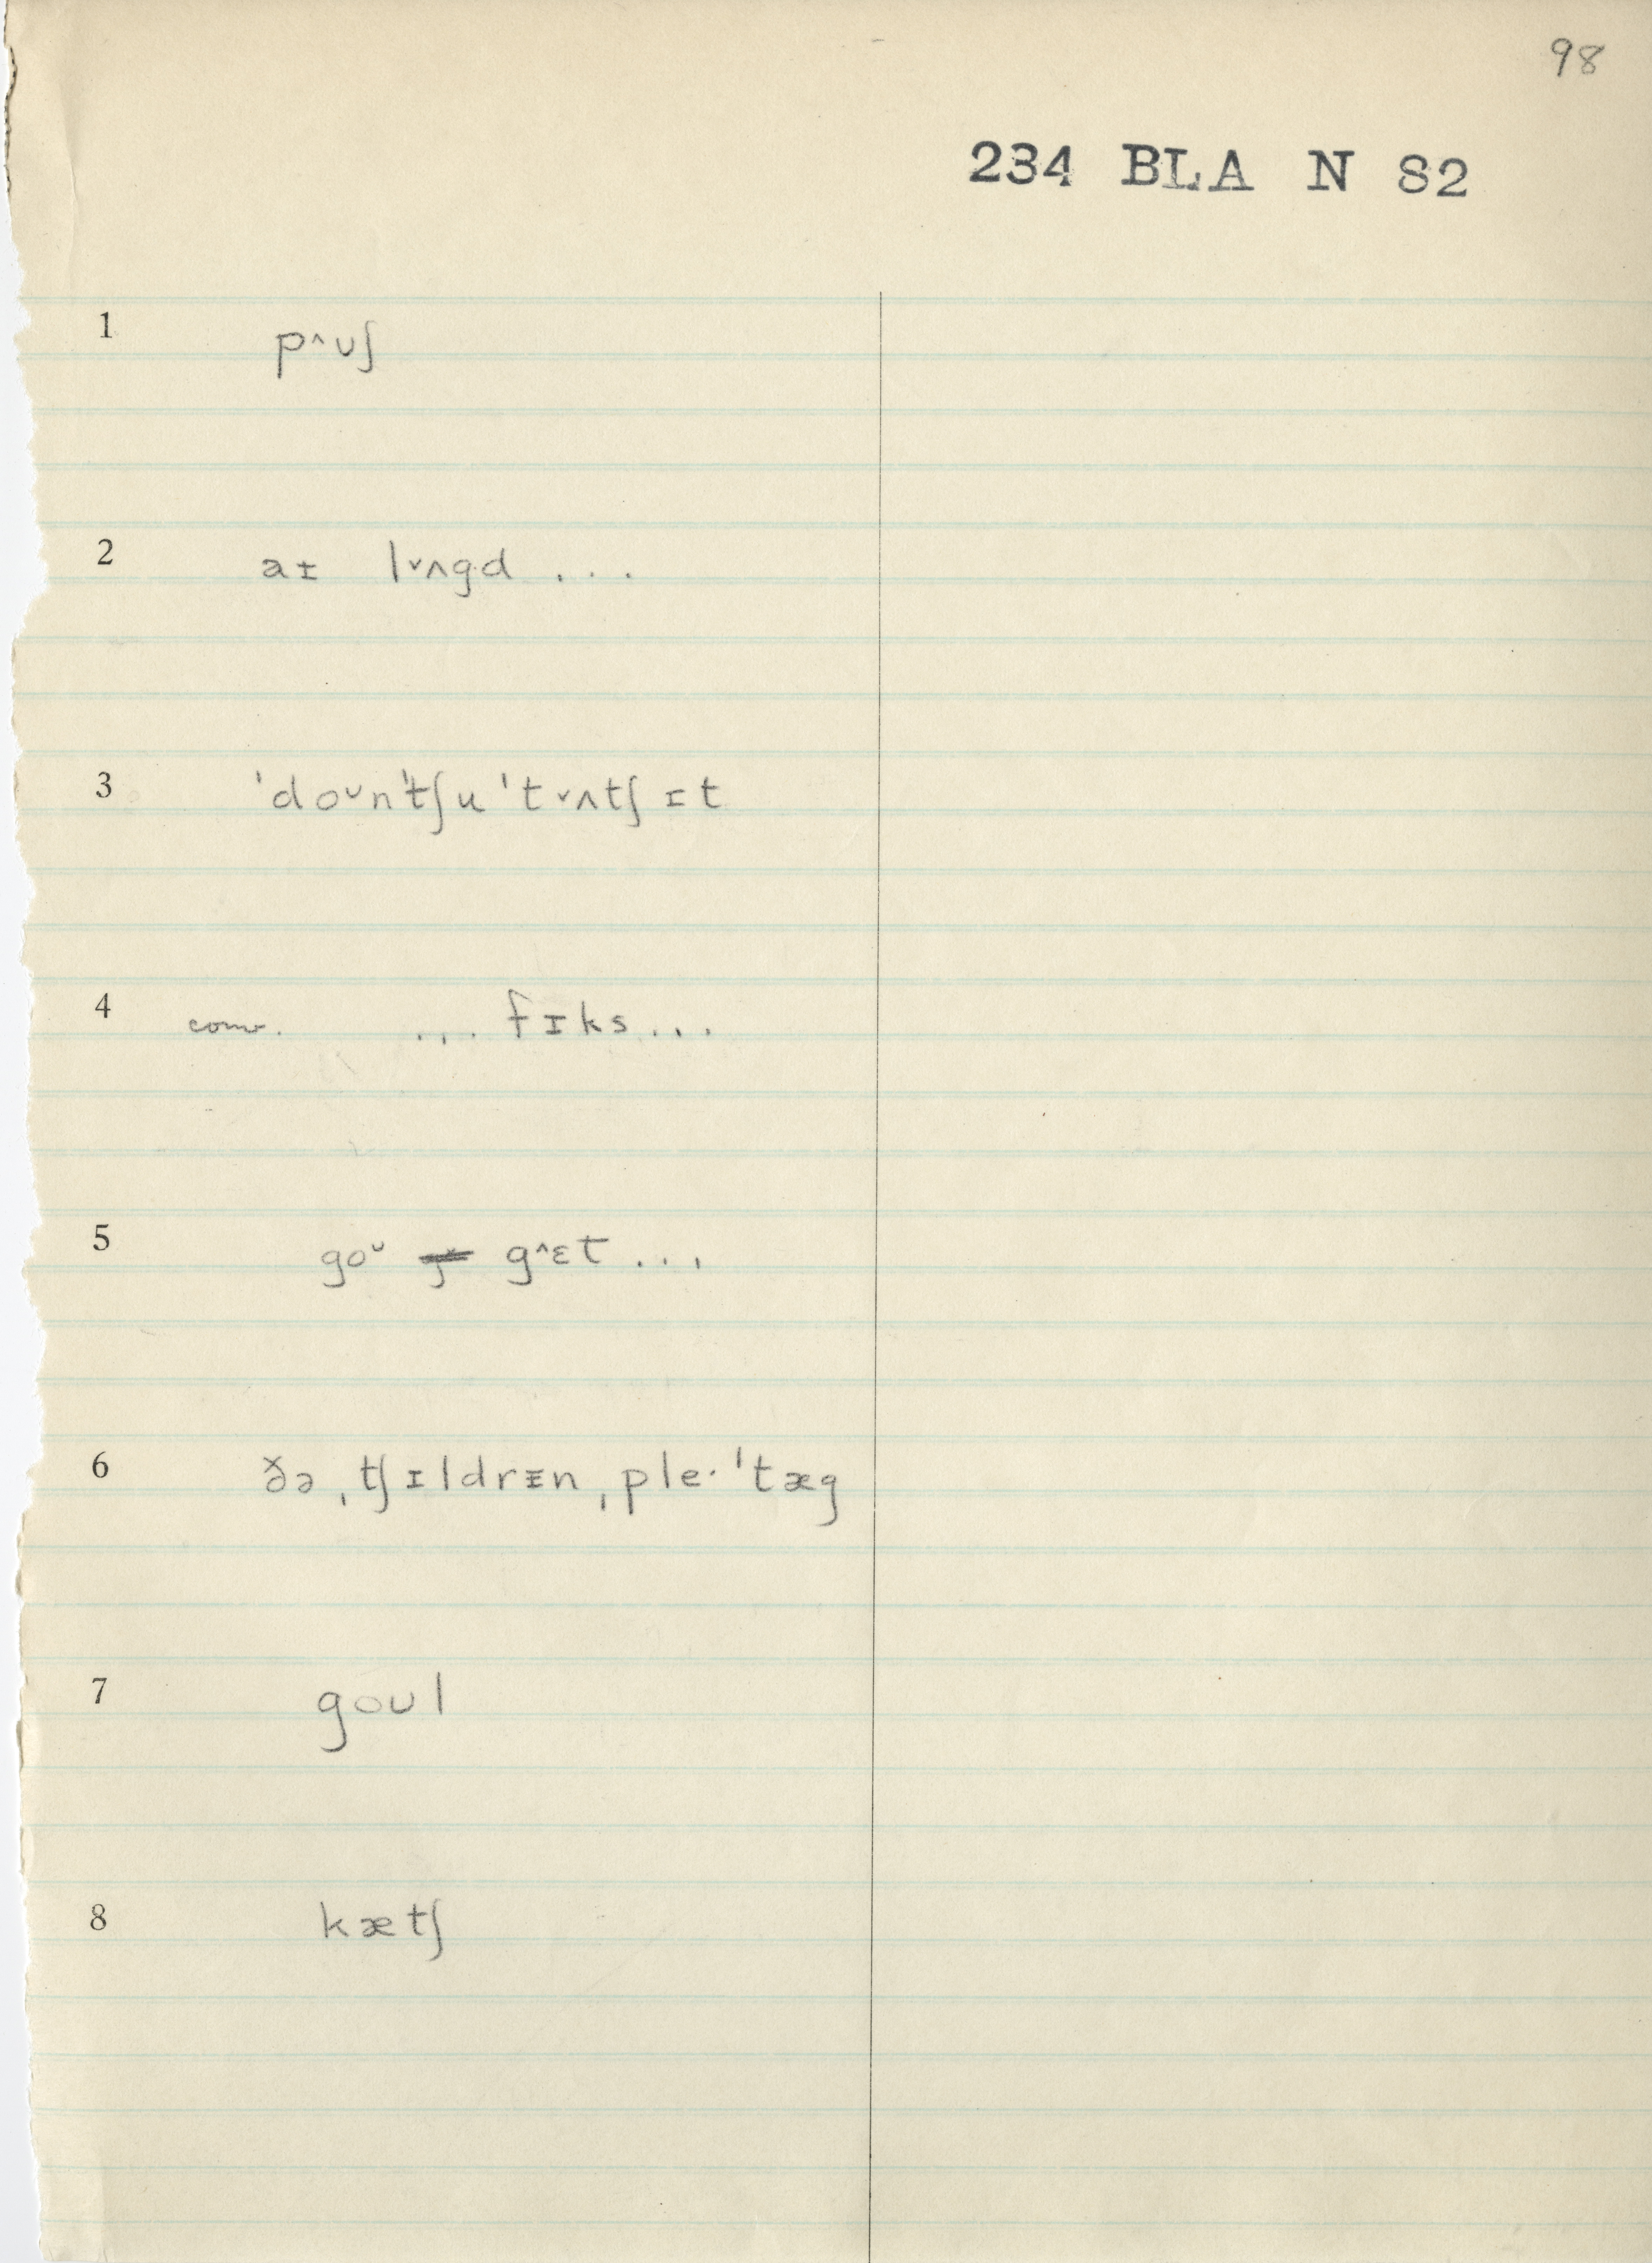 98
234 BLA N 82
1 p˄ʊʃ
2 aɪ l˅ʌgd ...
3 ˈdoᴗnˈtʃu ˈt˅ʌtʃ ɪt
4 conv. ... fɪks ...
5 goᴗ g˄ɛt ...
6 ðə ˌtʃɪldrᵻn ˌple· ˈtæg
7 goʊl
8 kætʃ